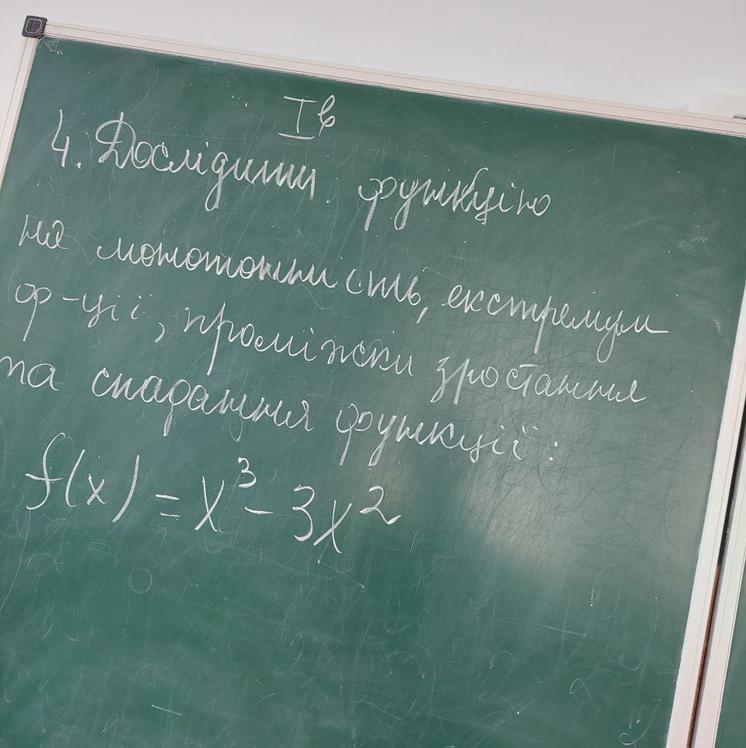 Iв
4. Дослідити функцію
на монотонність, екстремум
ф-ції, проміжки зростання
та спадання функції:
f(x) = x³ - 3x²